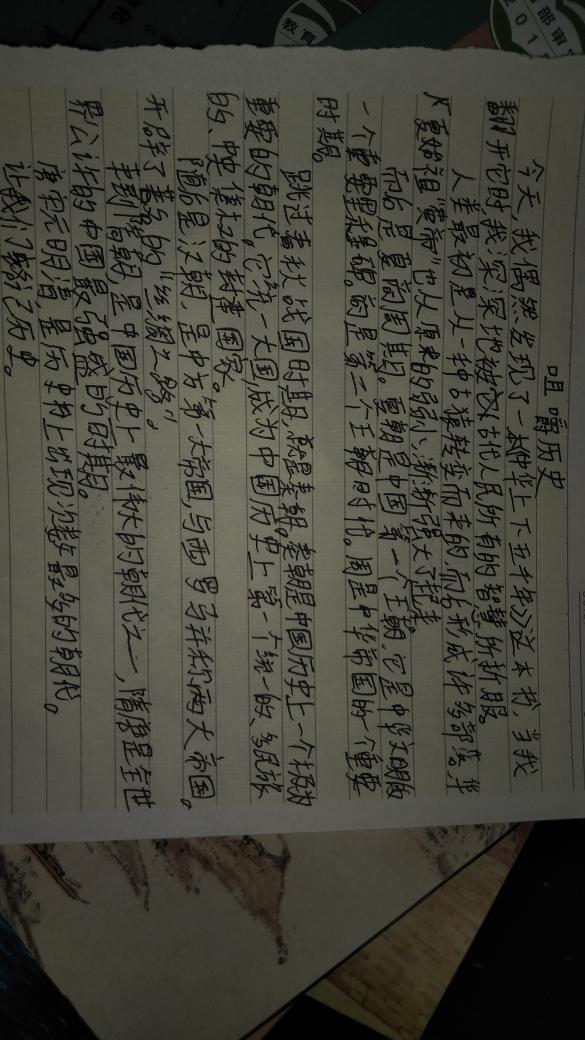 咀嚼历史
今天,我偶然发现了一本《中华上下五千年》这本书,当我
翻开它时,我深深地被古代人民所有的智慧所折服。
人类最初是从一种古猿转变而来的,而后形成许多部落,华
夏始祖"黄帝"也从原来的弱小,渐渐强大了起来。
而后是夏商周朝。夏朝是中国第一个王朝,它是中华文明版
一个重要里程碑。商是第二个王朝时代。周是中华帝国的一个重要
时期。
跳过春秋战国时期,就是秦朝。秦朝是中国历史上一个极为
重要的朝代。它统一大国,成为中国历史上第一个统一的、多民族
的、中央集权的封建国家。
随后是汉朝,是中古第一大帝国,与西罗马并称两大帝国。
开辟了著名的"丝绸之路"。
到隋朝,是中国历史上最伟大的朝代之一,隋唐是全世
界公认的中国最强盛的时期。
唐宋元明清,是历史上出现次数最多的朝代。
让我们铭记历史。
教育
部审
201